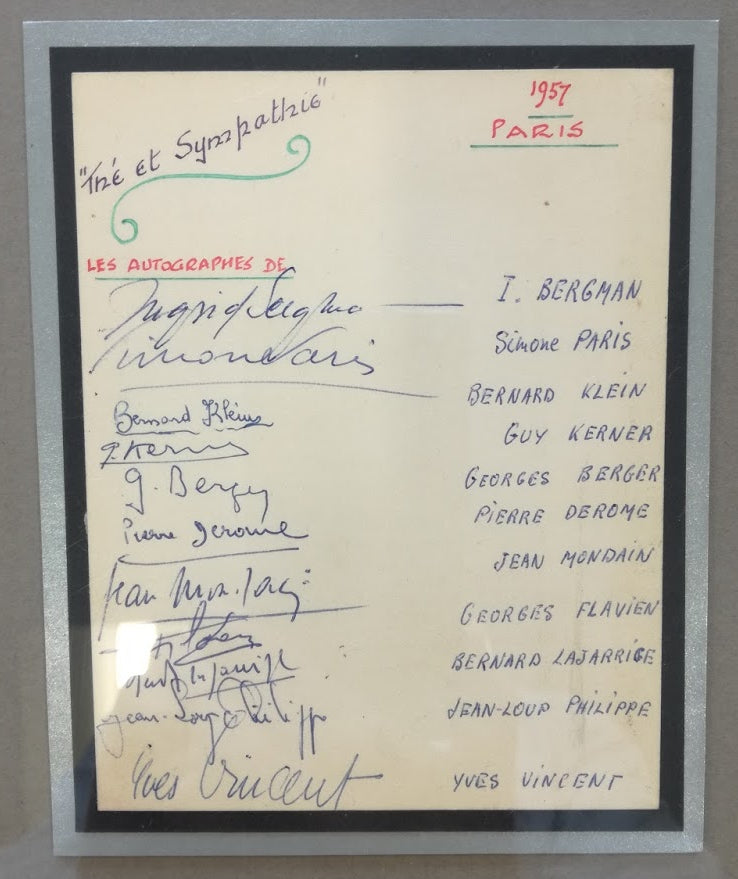 "Thé et Sympathie"
1957
PARIS
LES AUTOGRAPHES DE
Ingrid Bergman — I. BERGMAN
Simone Paris Simone PARIS
Bernard Klein BERNARD KLEIN
G. Kerner GUY KERNER
G. Berger GEORGES BERGER
Pierre Derome PIERRE DEROME
Jean Mondain JEAN MONDAIN
GEORGES FLAVIEN
BERNARD LAJARRIGE
Jean-Loup Philippe JEAN-LOUP PHILIPPE
Yves Vincent YVES VINCENT